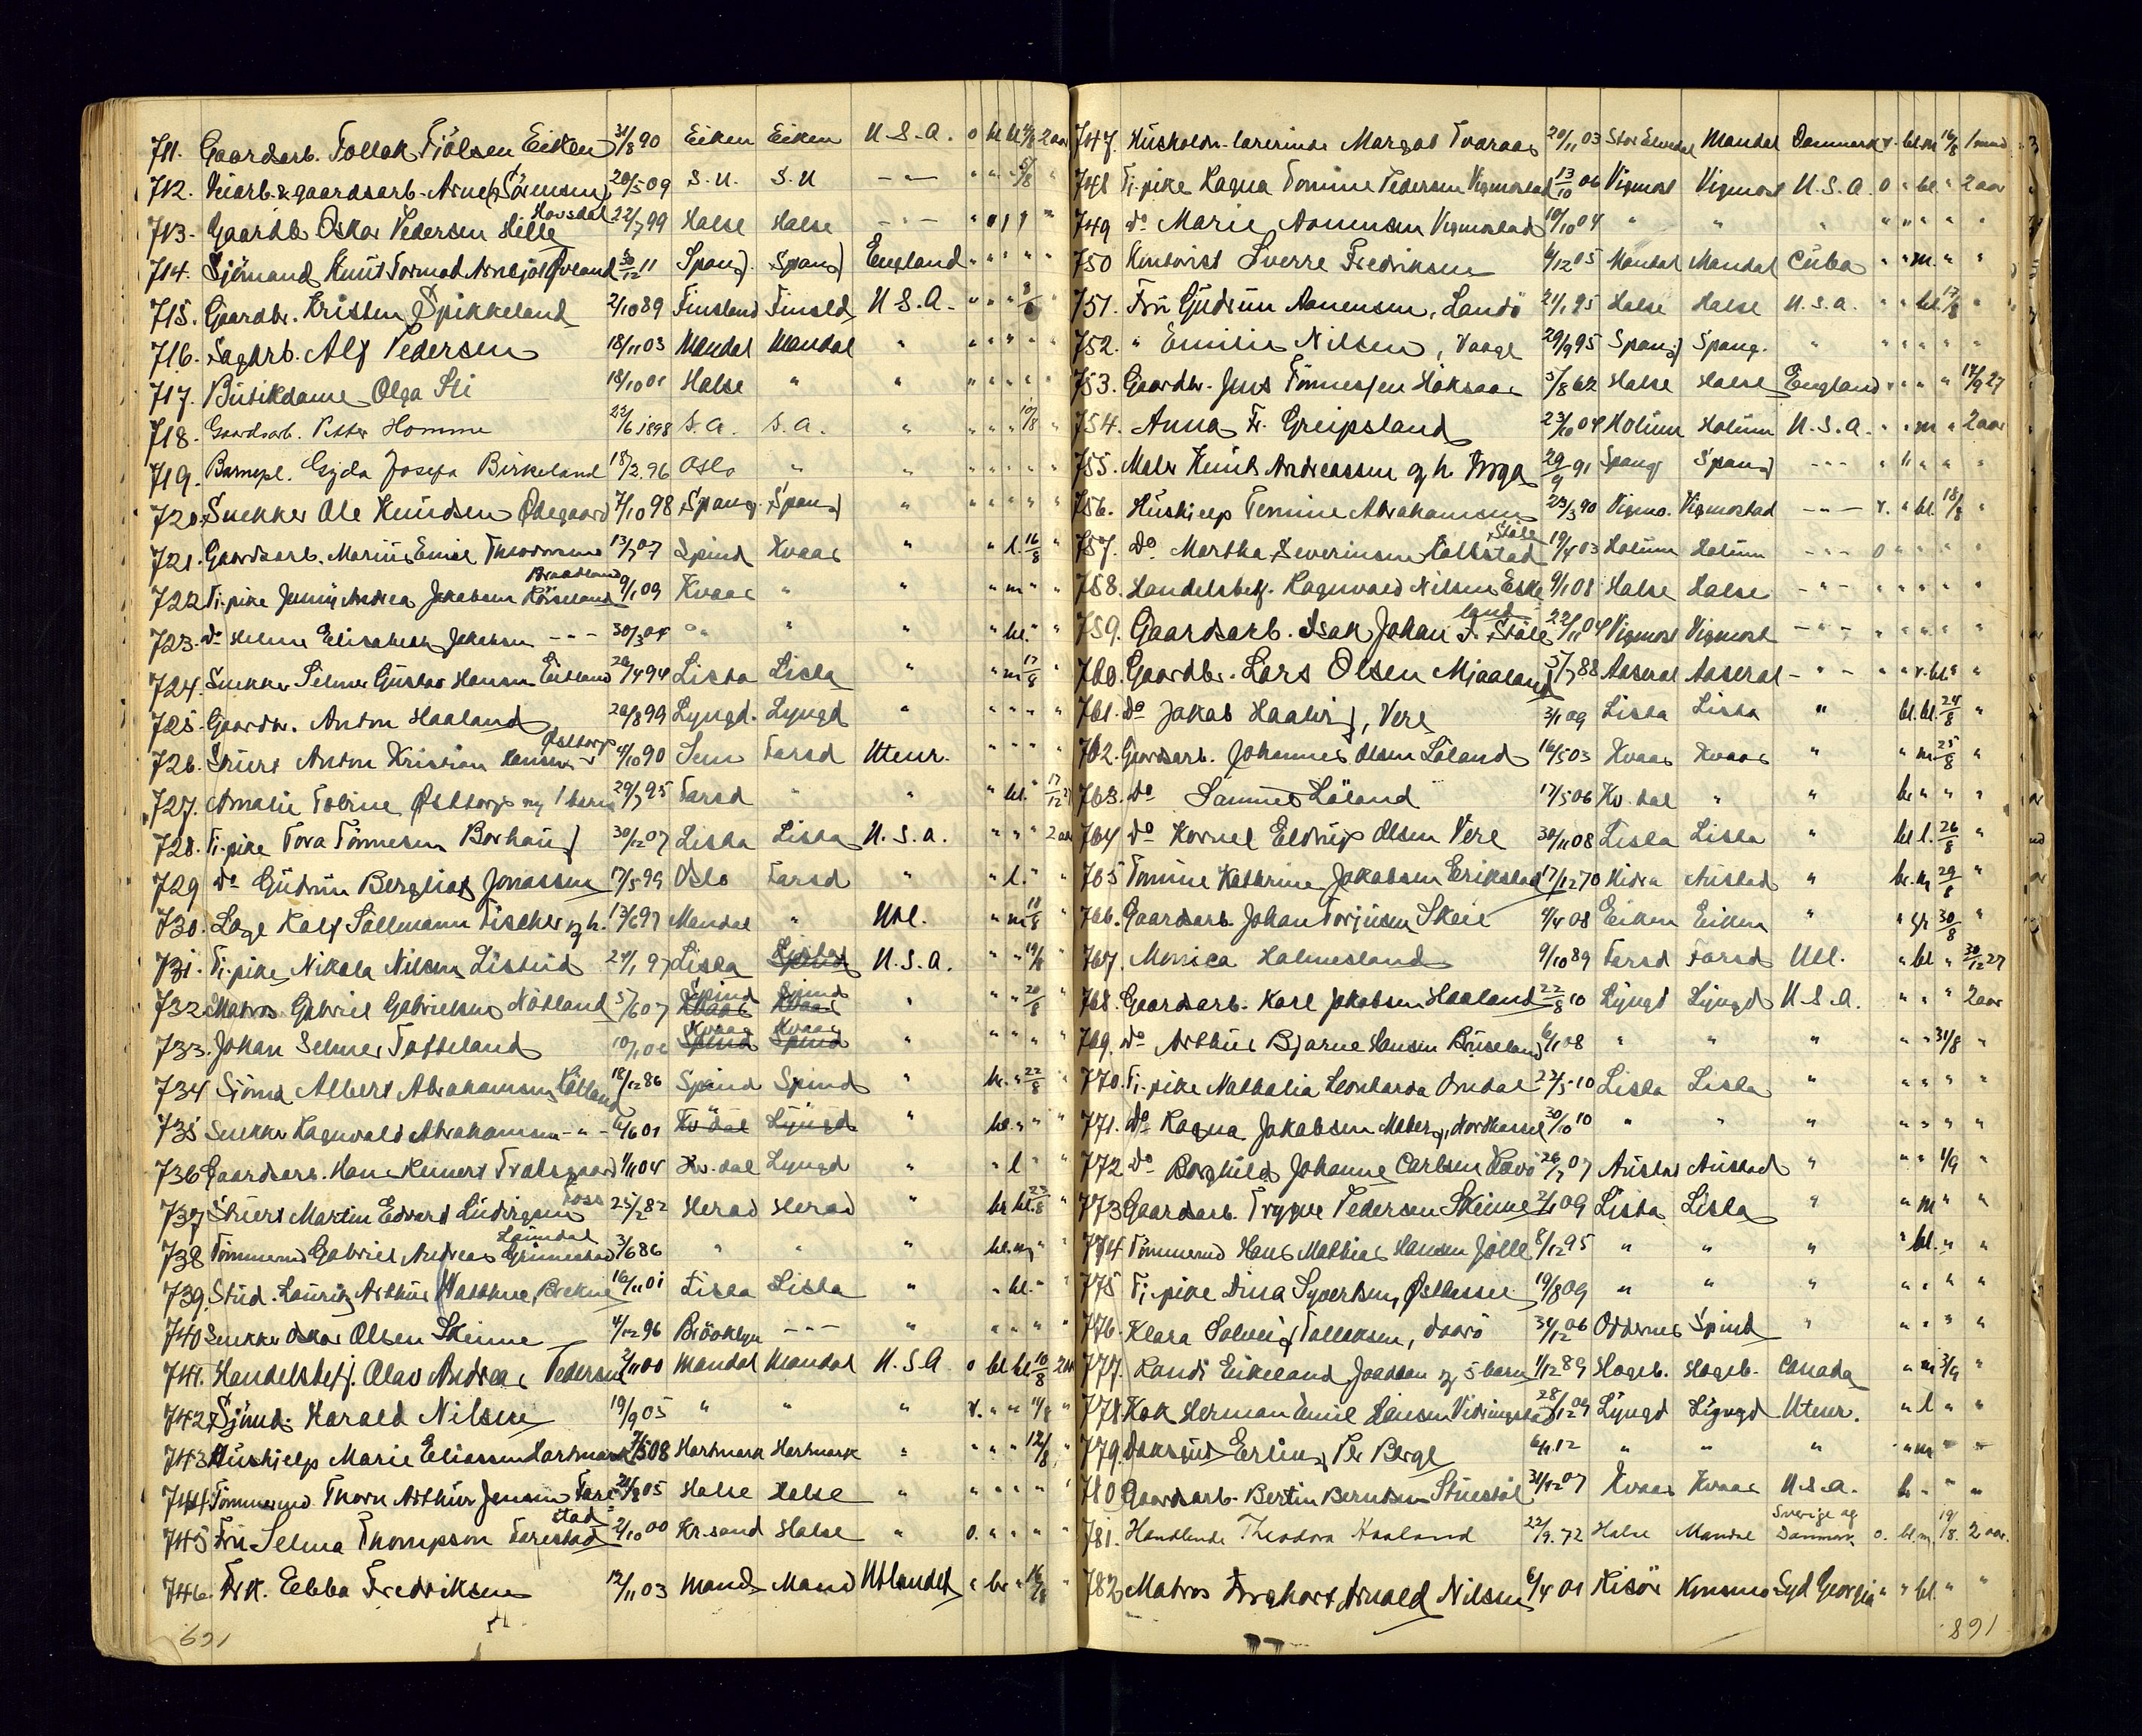 711. Gaardarb. Tollak Fjölsen Eiken 31/8 90 Eiken Eiken U.S.A. o bl bl 4/8 2 aar
712. Veiarb. & gaardsarb. Arne Sörensen 20/5 09 S.U. S.U - " - " " " 5/8 "
Hovsdal
713. Gaardbr Oskar Pedersen Hille 22/7 99 Halse Halse - " -
714. Sjömand Knut Tormod Arnejot Öveland 30/12 11 Spang. Spang England " " " " "
715. Gaardbr. Kristen Spikkeland 2/10 89 Finsland Finsld U.S.A. " " "
716. Sagarb. Alf Pedersen 18/11 03 Mandal Mandal " " " " " "
717. Butikdame Olga Sti 18/10 01 Halse " " " " " " "
718. Gaardsarb. Petter Homme 22/6 1898 S.A. S.A. " " " " 10/8 "
719. Barnepl. Gyda Josefa Birkeland 18/2 96 Oslo " " " " " " "
720. Snekker Ole Knudsen Ödegaard 7/10 98 Spang. Spang " " " " " "
721. Gaardsarb. Marius Emil Theodorsen 13/7 07 Spind Kvaas " " l. 16/8 "
Braadland
722 Tj.pike Jenny Andrea Jakobsen Röiseland 9/1 09 Kvaas " " " m " "
723. do Helene Elisabeth Jakobsen - " - 30/3 04 " " " " bl. " "
724. Snekker Selmer Gustav Hansen Eitland 20/4 94 Lista Lista " " m 17/8 "
725. Gaardbr. Anton Haaland 20/8 99 Lyngd. Lyngd " " " " "
Östtorp
726. Skuert Anton Kristian Hansen 4/10 90 Sem Farsd Uteur. " " " "
727. Amalie Tobine Östtorp og 1 barn 29/7 95 Farsd " " " bl. " 17/12
728. Tj.pike Tora Tönnesen Borhaug 30/12 07 Lista Lista U.S.A. " " " 2 aar
729 do Gudrun Bergliot Jonassen 17/5 99 Oslo Farsd " " l. " "
730. Læge Ralf Sallmann Fischer og h. 13/6 97 Mandal " Utl. " m 18/8 "
731. Tj.pike Nikola Nilsen Listeid 24/1 97 Lista U.S.A. " " 19/8 "
Spind Spind
732 Matros Gabriel Gabrielsen Nötland 5/6 07 Kvaas Kvaas " " " 20/8 "
Kvaas Kvaas
733. Johan Selmer Tatteland Spind Spind " " " " "
734 Sjömd Albert Abrahamsen 18/12 86 Spind Spind " br. " 22/8 "
735 Snekker Ragnvald Abrahamsen - " - 6/6 01 Kv.dal Lyngd " bl. " " "
736 Gaardsarb. Hans Reinert Tratsgaard 1/11 04 Kv.dal Lyngd " " l " "
Foss
737 Skuert Martin Edvard Ludvigsen 25/2 82 Herad Herad " br bl. 23/8 "
Laundal
738 Tömmermd Gabriel Andreas Grimestad 3/6 86 " " " bl. m " "
739. Stud. Lauritz Arthur Watthne, Brekne 16/11 01 Lista Lista " " bl. " "
740 Snekker Oskar Olsen Skeime 4/12 96 Brooklyn - " - " " " " "
741. Handelsbetj. Olav Andreas Pedersen 2/11 00 Mandal Mandal U.S.A. o bl bl 10/8 2 aar
742. Sjömd. Harald Nilsen 19/9 05 " " " v. " " 11/8 "
743 Hushjelp Marie Eliassen Hartmark 7/5 08 Hartmark Hartmark " " " " 12/8 "
744. Tömmermd Thorn Arthur Jensen Fare 21/8 05 Halse Halse " " " " " "
stad
745 Fru Selma Thompson Farestad 2/10 00 Kr.sand Halse " o. " " " "
746. Frk. Ebba Fredriksen 12/11 03 Mand Mand Utlandet " br " 16/8 "
691
747. Husholdn. lærerinde Margot Tvaraas 20/11 03 Stor Elvedal Mandal Danmark v. bl. m 16/8 1 mnd
748 Tj.pike Ragna Tomine Pedersen Vigmostad 13/10 06 Vigmost Vigmost U.S.A. o " bl. " 2 aar
749 do Marie Aanensen Vigmostad 10/10 04 " " " " " " " "
750 Sverre Fredriksen 6/12 05 Mandal Mandal Cuba " " m. " "
751. Fru Gudrun Aanensen, Landö 21/1 95 Halse Halse U.S.A. " " bl. 17/8 "
752. " Emilie Nilsen, Vaage 29/9 95 Spang Spang. " " " " " "
753. Gaardbr. Jens Tönnessen Höksaas 5/8 62 Halse Halse England " " " " 17/9 27
754. Anna Fr. Greipsland 23/10 04 Holum Holum U.S.A. " " m " 2 aar
755. Maler Knut Andreassen og h. Inga 29/9 91 Spang Spang - " - " " " " "
756. Hushjelp Tomine Abrahamsen 23/3 90 Vigmo. Vigmostad - " - v. " bl 18/8 "
Støle
757. Do Martha Severinsen Hallstad 19/4 03 Holum Holum - " - o " " " "
758. Handelsbetj. Ragnvald Nilsen Eske 9/1 08 Halse Halse - " - " " " " "
land
759. Gaardsarb. Isak Johan T. Støle 22/11 04 Vigmost Vigmost - " - " " " " "
760. Gaardbr. Lars Olsen Mjaaland 5/7 88 Aaseral Aaseral - " - " " v. bl " "
761. Do Jakob Haahr, Vere 3/1 09 Lista Lista " bl. bl. 24/8 "
762. Gaardsarb. Johannes Olsen Löland 16/5 03 Kvaas Kvaas " " m. 25/8 "
763. Do Samuel Löland 17/5 06 Kv.dal " " br " " "
764 do Kornel Eldrup Olsen Vere 30/11 08 Lista Lista " bl l. 26/8 "
765 Tomine Kathrine Jakobsen Erikstad 17/12 70 Hidra Austad " br. m 29/8 "
766. Gaardsarb. Johan Torjusen Skeie 4/4 08 Eiken Eiken " " gr 30/8 "
767. Monica Halmesland 9/10 89 Farsd Farsd Utl. " bl " 30/12 27
768. Gaardsarb. Karl Jakobsen Haaland 22/8 10 Lyngd Lyngd U.S.A. " " " 2 aar
769. Do Arthur Bjarne Hansen Bruseland 6/11 08 " " " " " 31/8 "
770. Tj.pike Nathalia Leonharda Omdal 22/5 10 Lista Lista " " " " "
771. Do Ragna Jakobsen Meberg, Nordhassel 30/10 10 " " " " " " "
772 do Borghild Johanne Carlsen Lavö 26/7 07 Austad Austad " " " 1/9 "
773 Gaardsarb. Trygve Pedersen Skeime 2/11 09 Lista Lista " " m " "
774. Tömmermd Hans Mathias Hansen Jölle 8/12 95 " " " " bl. " "
775 Tj.pike Dina Syvertsen, Østhassel 19/8 09 " " " " " " "
776. Klara Solveig Tallaksen, Aaarö 31/12 06 Oddernes Spind " " " " "
777. Randi Eikeland Joadsen og 5 barn 1/12 89 Hægeb. Hægeb. Canada " m 3/9 "
778. Kok Herman Emil Hansen Vedringstad 28/12 09 Lyngd Lyngd Uteur. " l " "
779. Dæksgut Erling Per Berge 6/11 12 " " " " m " "
780 Gaardsarb. Bertin Berntsen Stuestöl 31/12 07 Kvaas Kvaas U.S.A. b. " " "
Sverige og
781. Handlende Theodora Haaland 22/9. 72 Halse Mandal Danmark o. bl. m. 19/8. 2 aar.
782 Matros Arnold Nilsen 6/4 01 Risör Syd Georgia " " bl. " "
891